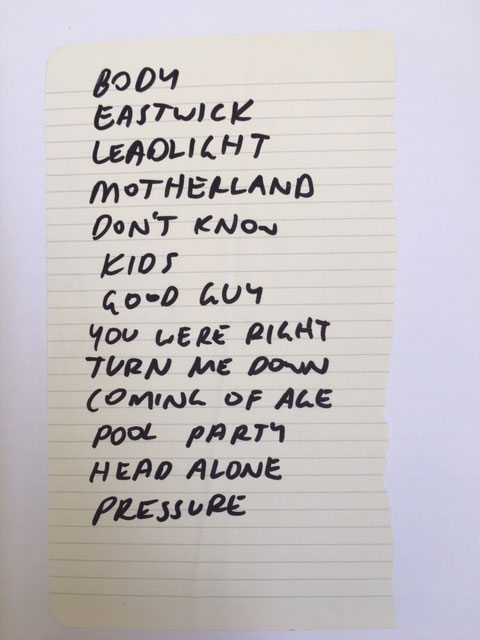 BODY
EASTWICK
LEADLIGHT
MOTHERLAND
DON'T KNOW
KIDS
GOOD GUY
YOU WERE RIGHT
TURN ME DOWN
COMING OF AGE
POOL PARTY
HEAD ALONE
PRESSURE